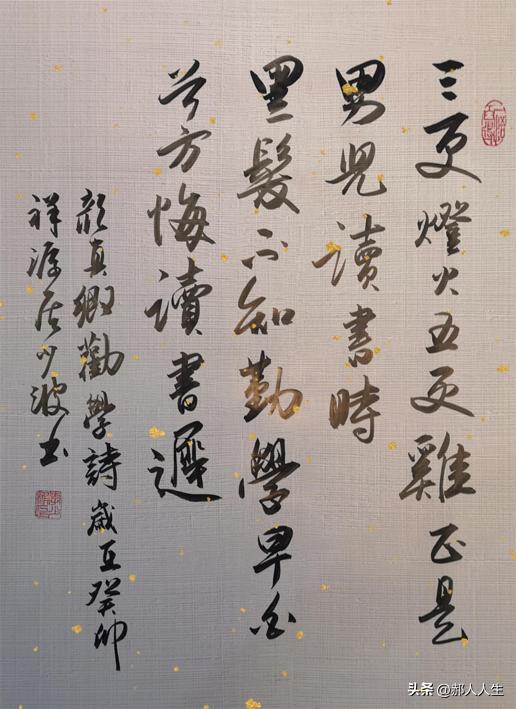 三更燈火五更雞正是
男兒讀書時
黑髮不知勤學早白
首方悔讀書遲
顏真卿勸學詩歲在癸卯
祥源居少波书
头条 @郝人人生